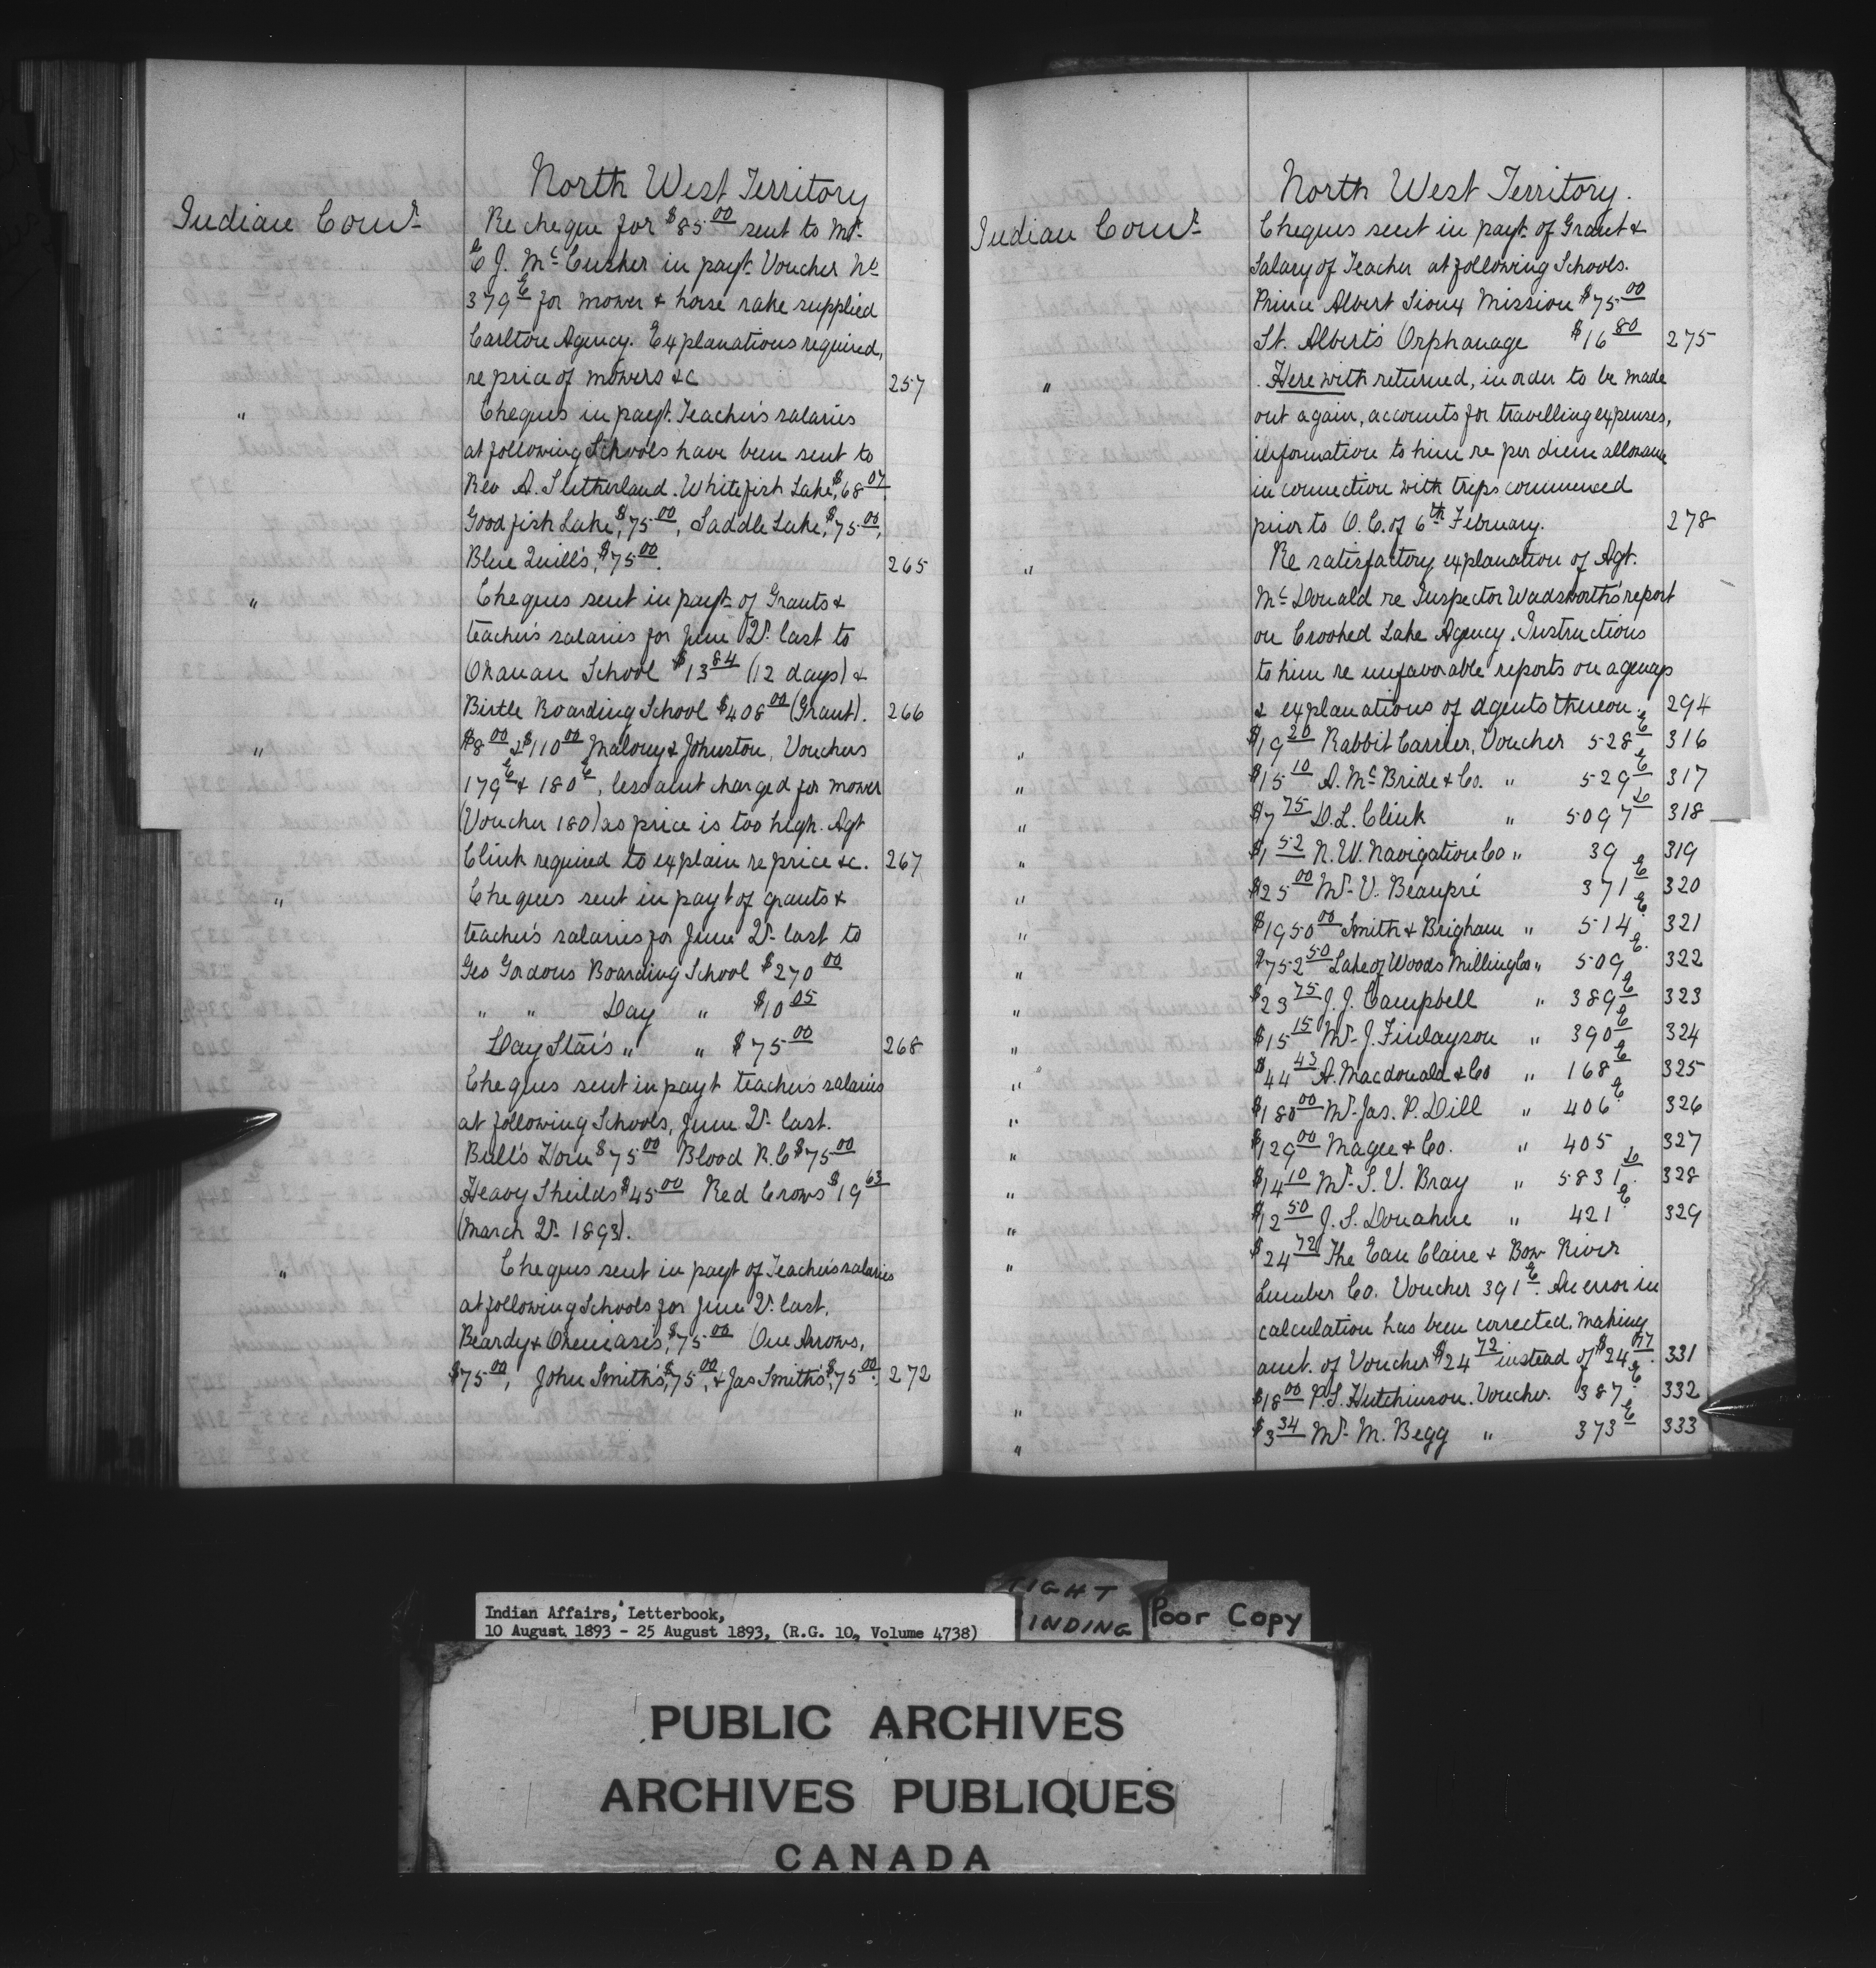 North West Territory
Indian Comr. Re cheque for $85.00 sent to Mr.
C J. McCusker in payt. Voucher No
379 E for mower & horse rake supplied
Carlton Agency. Explanations required,
re price of mowers &c 257
" Cheques in payt. Teacher's salaries
at following Schools have been sent to
Rev A. Sutherland. Whitefish Lake, $68.07
Goodfish Lake, $75.00, Saddle Lake, $75.00,
Blue Quill's, $75.00. 265
" Cheques sent in payt. of Grants &
teacher's salaries for June Qr. last to
Okanan School $13.84 (12 days) &
Birtle Boarding School $408.00 (Grant). 266
" $8.00 & $110.00 Malony & Johnston, Vouchers
179 E & 180 E, less amt charged for mower
(Voucher 180) as price is too high. Agt
Clink required to explain re price &c. 267
" Cheques sent in payt of grants &
teacher's salaries for June Qr. last to
Geo Gordons Boarding School $270.00
" " Day " $10.05
Day Star's " " $75.00 268
Cheques sent in payt teacher's salaries
at following Schools, June Qr. last.
Bull's Horn $75.00 Blood R.C $75.00
Heavy Sheilds $45.00 Red Crows $19.63
(March Qr. 1893).
" Cheques sent in payt of Teacher's salaries
at following Schools for June Qr. last,
Beardy & Okemasis, $75.00 One Arrows,
$75.00, John Smith's, $75.00, & Jas Smith's, $75.00. 272
North West Territory.
Indian Comr. Cheques sent in payt. of Grant &
Salary of Teacher at following Schools.
Prince Albert Sioux Mission $75.00
St. Albert's Orphanage $16.80 275
" Herewith returned, in order to be made
out again, accounts for travelling expenses,
information to him re per diem allowance
in connection with trips commenced
prior to O.C. of 6th February. 278
" Re satisfactory explanation of Agt.
McDonald re Inspector Wadsworth's report
on Crooked Lake Agency. Instructions
to him re unfavorable reports on agencys
& explanations of agents thereon. 294
" $19.20 Rabbit Carrier, Voucher 528 E 316
" $15.10 A. McBride & Co. " 529 E 317
" $7.75 D.L. Clink " 5097 D 318
" $1.52 N.W. Navigation Co " 39 319
" $25.00 Mr. V. Beaupré 371 E 320
" $1950.00 Smith & Brigham " 514 E 321
" $752.50 Lake of Woods Milling Co " 509 E 322
" $23.75 J.J. Campbell " 389 E 323
" $15.15 Mr. J. Finlayson " 390 E 324
" $44.43 A. Macdonald & Co " 168 E 325
" $180.00 Mr. Jas. P. Dill " 406 E 326
" $129.00 Magee & Co. " 405 327
" $14.10 Mr. S.V. Bray " 5831 D 328
" $12.50 J.S. Donahue " 421 E 329
" $24.72 The Eau Claire & Bow River
Lumber Co. Voucher 391 E. An error in
calculation has been corrected, making
amt. of Voucher $24.72 instead of $24.77. 331
" $18.00 P.S. Hutchinson. Voucher. 387 E 332
" $3.34 Mr. M. Begg " 373 E 333
Indian Affairs, Letterbook,
10 August 1893 - 25 August 1893, (R.G. 10, Volume 4738)
TIGHT
BINDING
Poor Copy
PUBLIC ARCHIVES
ARCHIVES PUBLIQUES
CANADA